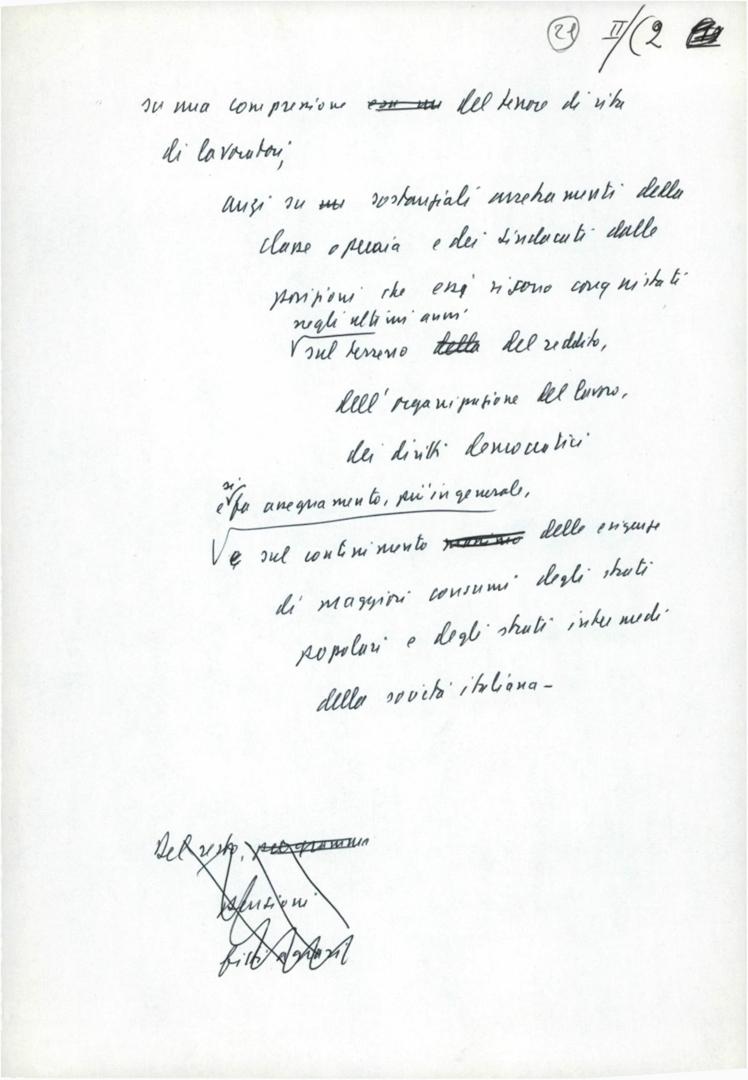 21 II/(2
su una compressione del tenore di vita
di lavoratori;
anzi su sostanziali arretramenti della
classe operaia e dei sindacati dalle
posizioni che essi si sono conquistati
negli ultimi anni
sul terreno della del reddito,
dell'organizzazione del lavoro,
dei diritti democratici
e si fa assegnamento, più in generale,
e sul contenimento delle esigenze
di maggiori consumi degli strati
popolari e degli strati intermedi
della società italiana -
Del resto,
pensioni
fitti agrari